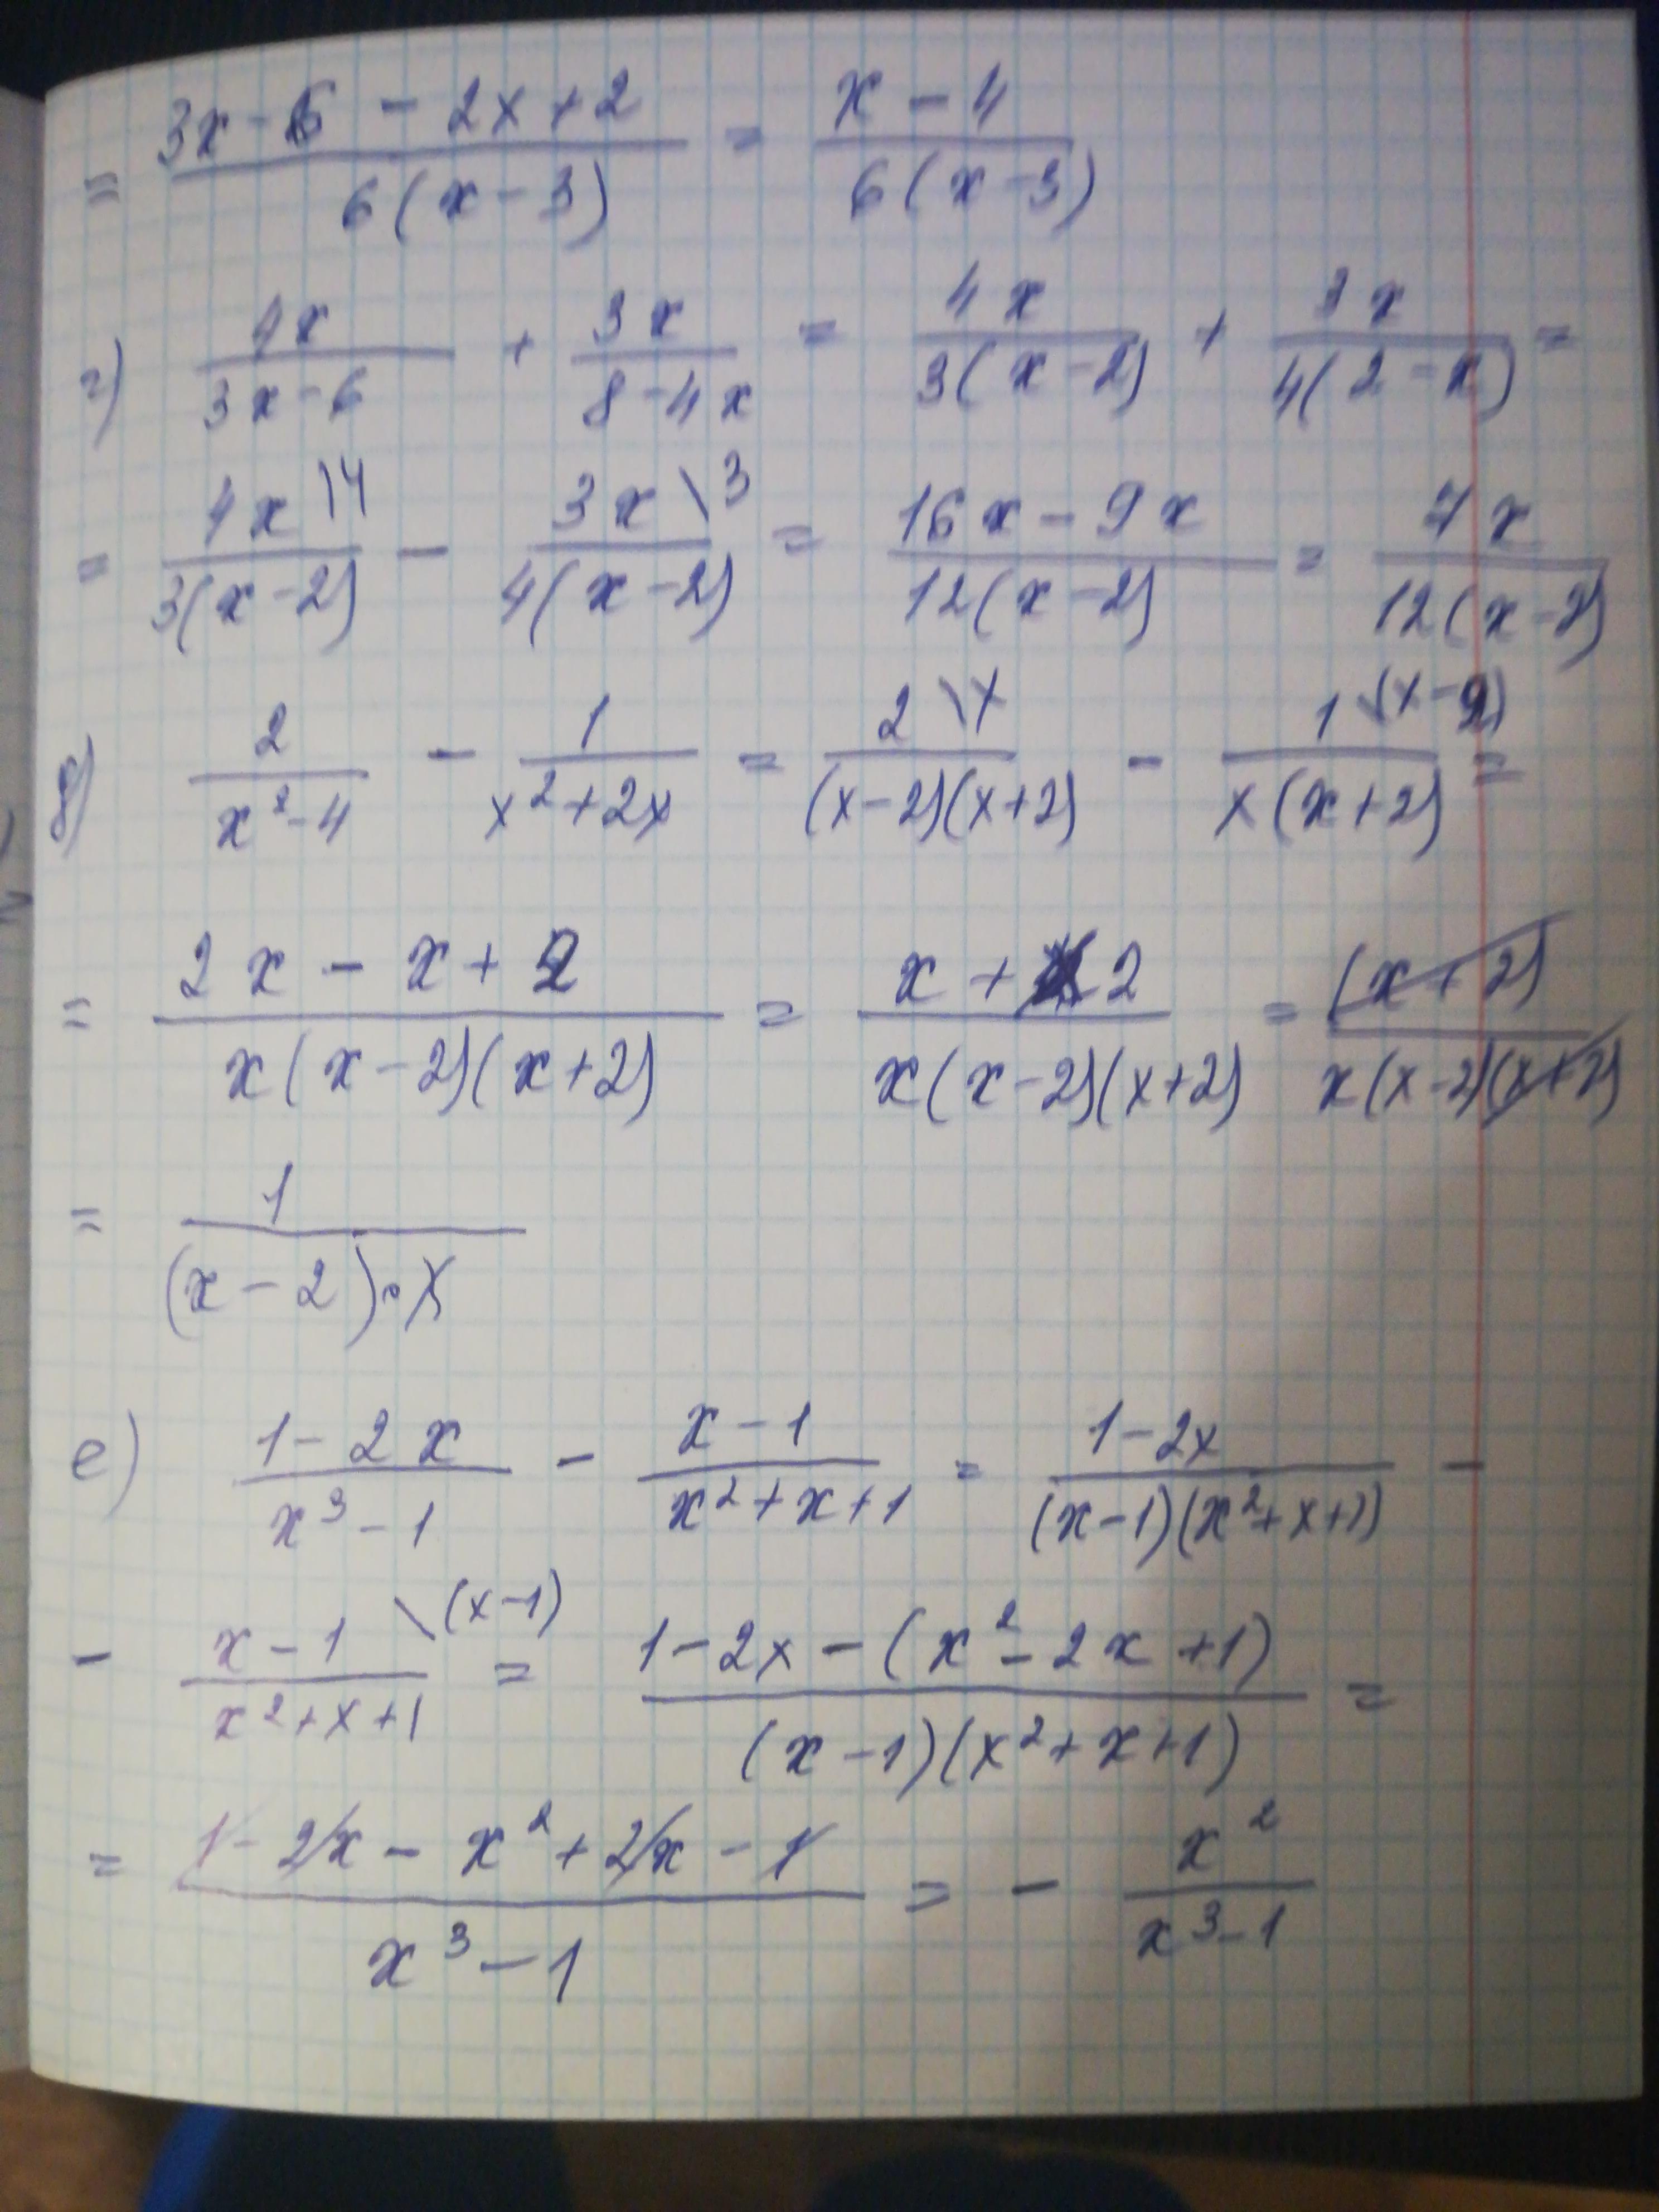 = (3x - 6 - 2x + 2)/(6(x - 3)) = (x - 4)/(6(x - 3))
г) 4x/(3x - 6) + 3x/(8 - 4x) = 4x/(3(x - 2)) + 3x/(4(2 - x)) =
= 4x\4/(3(x - 2)) - 3x\3/(4(x - 2)) = (16x - 9x)/(12(x - 2)) = 7x/(12(x - 2))
д) 2/(x² - 4) - 1/(x² + 2x) = 2\x/((x - 2)(x + 2)) - 1\(x - 2)/(x(x + 2)) =
= (2x - x + 2)/(x(x - 2)(x + 2)) = (x + 2)/(x(x - 2)(x + 2)) = (x + 2)/(x(x - 2)(x + 2))
= 1/((x - 2)·x)
е) (1 - 2x)/(x³ - 1) - (x - 1)/(x² + x + 1) = (1 - 2x)/((x - 1)(x² + x + 1)) -
- (x - 1)\(x - 1)/(x² + x + 1) = (1 - 2x - (x² - 2x + 1))/((x - 1)(x² + x + 1)) =
= (1 - 2x - x² + 2x - 1)/(x³ - 1) = - x²/(x³ - 1)